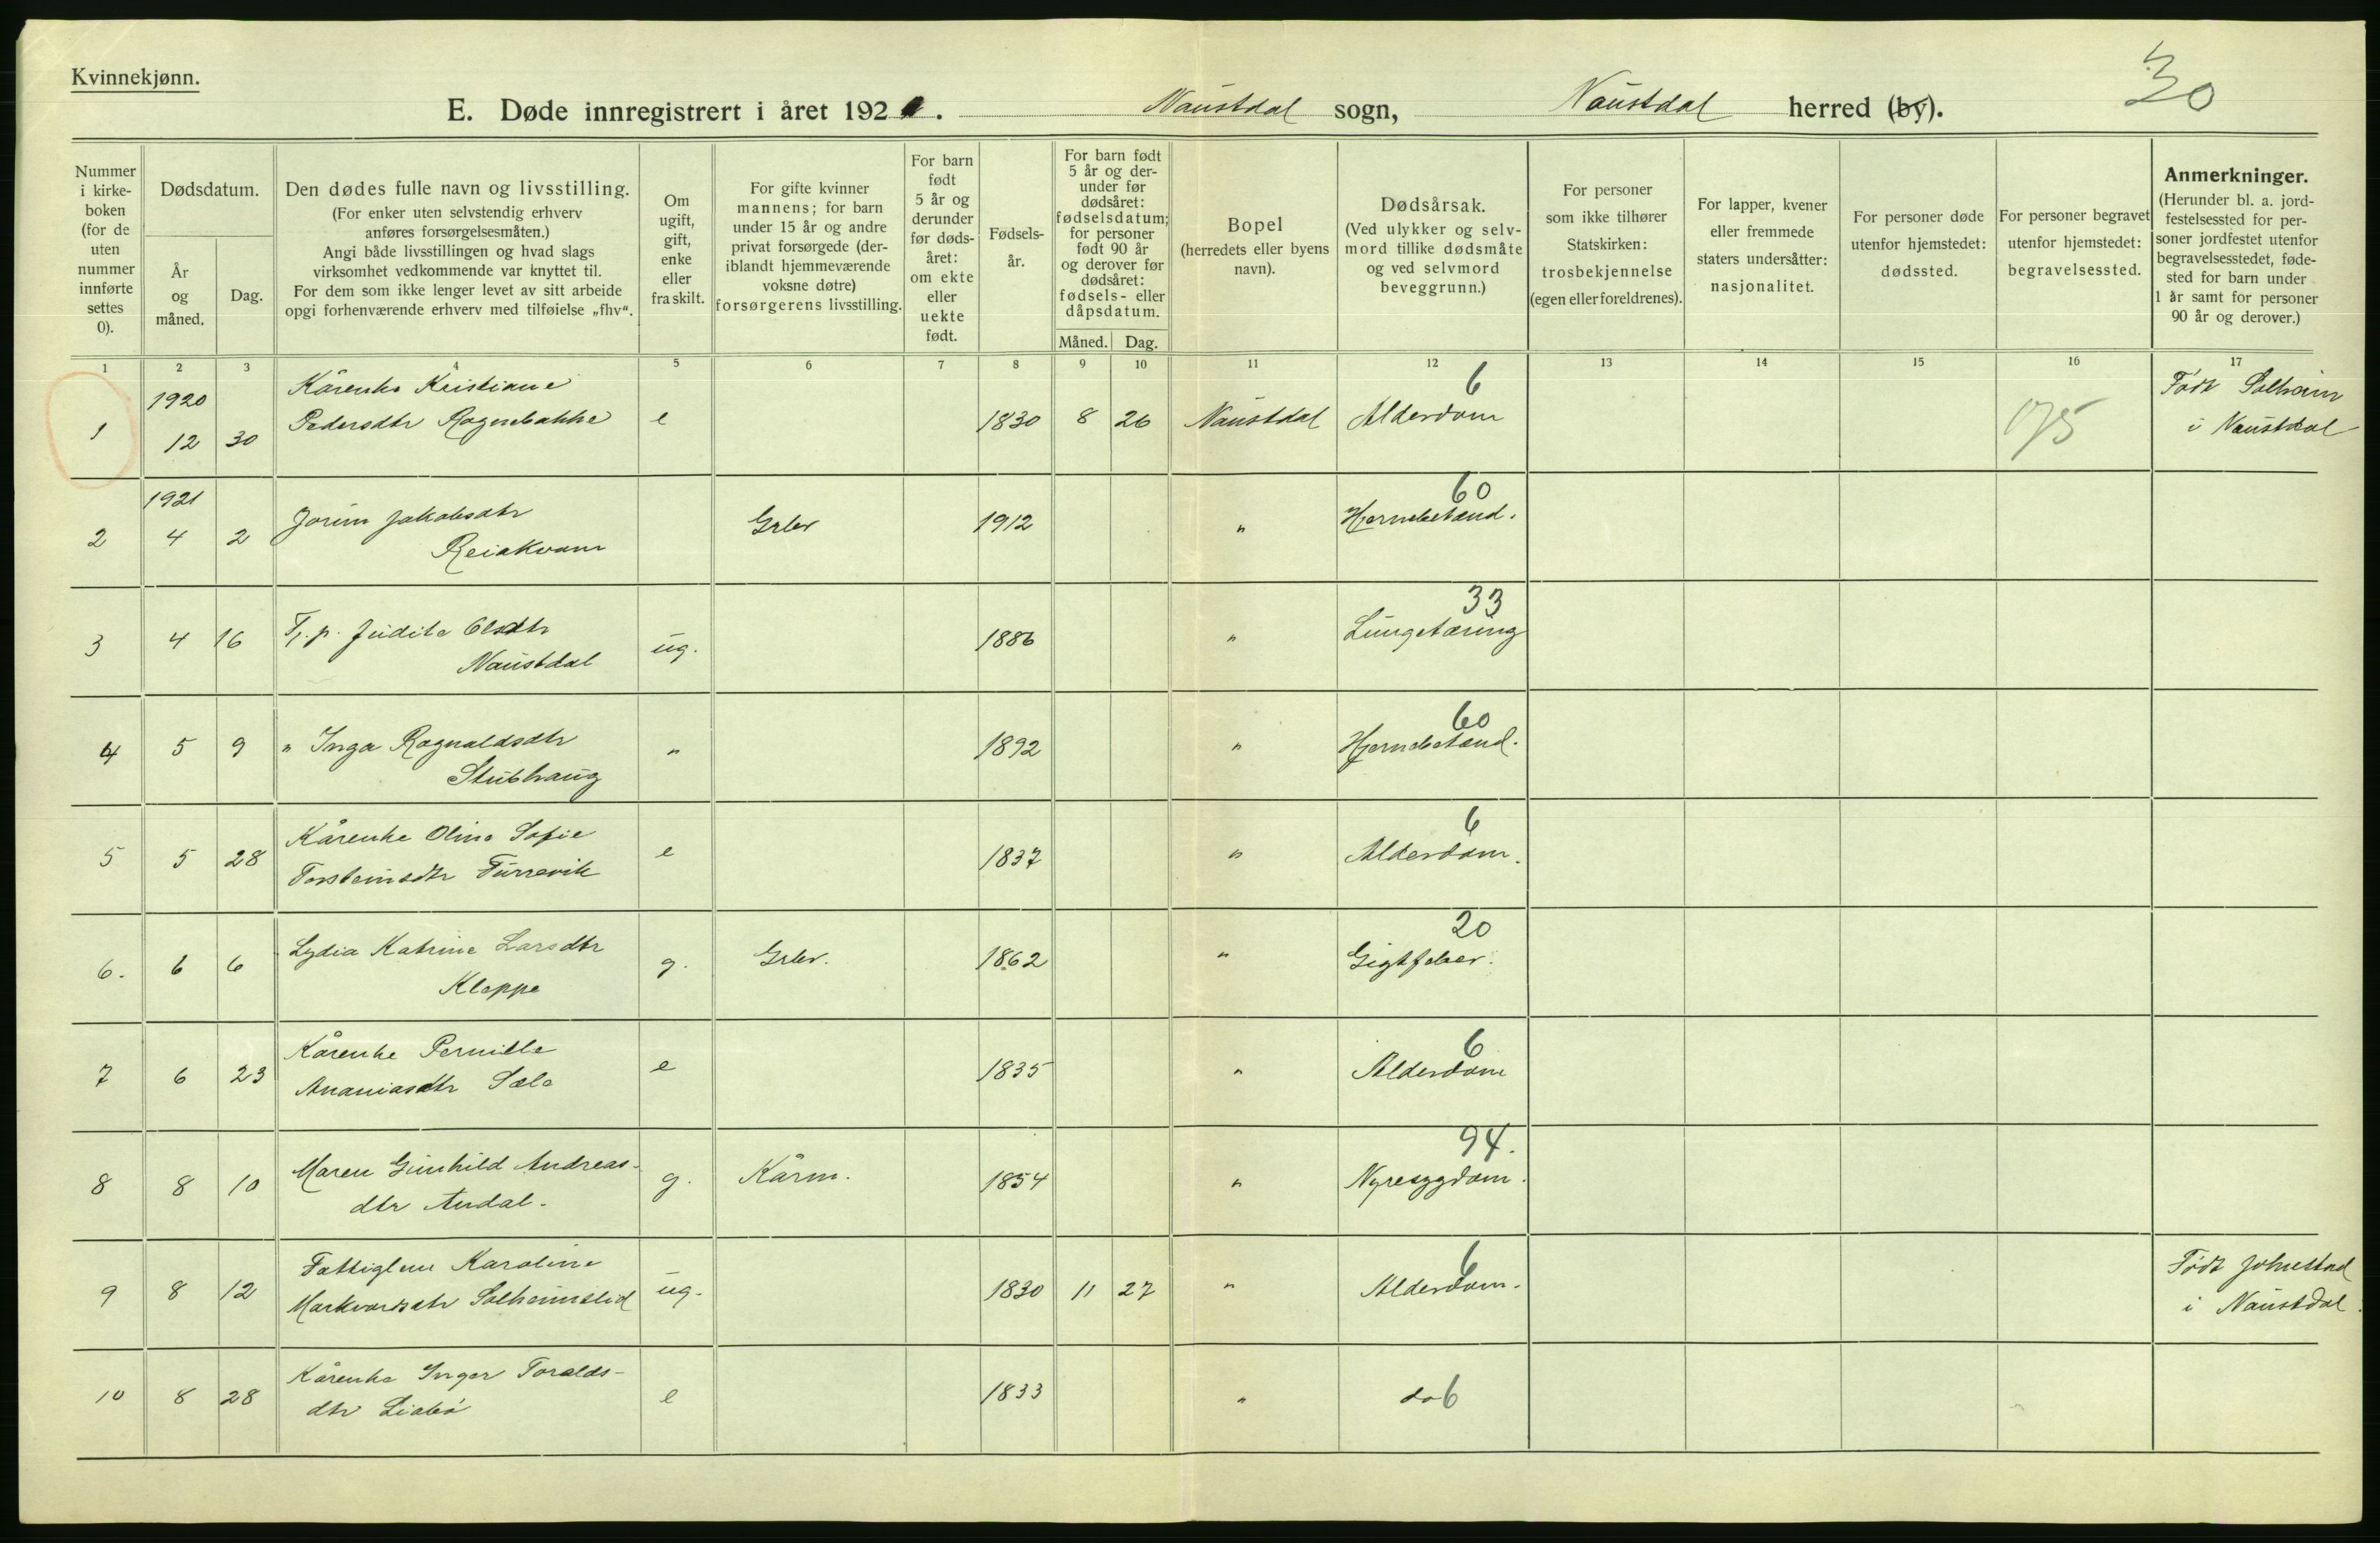 Kvinnekjønn.
30
E. Døde innregistrert i året 1921. Naustdal sogn, Naustdal herred (by).
Nummer i kirkeboken (for de uten nummer innførte settes 0).
Dødsdatum.
År og måned.
Dag.
Den dødes fulle navn og livsstilling.
(For enker uten selvstendig erhverv anføres forsørgelsesmåten.)
Angi både livsstillingen og hvad slags virksomhet vedkommende var knyttet til.
For dem som ikke lenger levet av sitt arbeide opgi forhenværende erhverv med tilføielse „fhv“.
Om ugift, gift, enke eller fraskilt.
For gifte kvinner mannens; for barn under 15 år og andre privat forsørgede (deriblandt hjemmeværende voksne døtre) forsørgerens livsstilling.
For barn født 5 år og derunder før dødsåret: om ekte eller uekte født.
Fødselsår.
For barn født 5 år og derunder før dødsåret: fødselsdatum; for personer født 90 år og derover før dødsåret: fødsels- eller dåpsdatum.
Måned. Dag.
Bopel (herredets eller byens navn).
Dødsårsak. (Ved ulykker og selvmord tillike dødsmåte og ved selvmord beveggrunn.)
For personer som ikke tilhører Statskirken: trosbekjennelse (egen eller foreldrenes).
For lapper, kvener eller fremmede staters undersåtter: nasjonalitet.
For personer døde utenfor hjemstedet: dødssted.
For personer begravet utenfor hjemstedet: begravelsessted.
Anmerkninger.
(Herunder bl. a. jordfestelsessted for personer jordfestet utenfor begravelsesstedet, fødested for barn under 1 år samt for personer 90 år og derover.)
1 2 3 4 5 6 7 8 9 10 11 12 13 14 15 16 17
1 1920 12 30 Kårenke Kristiane Pedersdtr Ragnebakke e 1830 8 26 Naustdal 6 Alderdom 175 Født Solheim i Naustdal
2 1921 4 2 Jorun Jakobsdtr Reiakvam Grbr 1912 " 60 Hjernebetænd.
3 4 16 Tj. p. Judite Olsdtr Naustdal ug. 1886 " 33 Lungetæring
4 5 9 " Inga Ragnaldsdtr Stubhaug " 1892 " 60 Hjernebetænd.
5 5 28 Kårenke Oline Sofie Torsteinsdtr Furrevik e 1837 " 6 Alderdom.
6. 6 6 Lydia Katrine Larsdtr Kleppe g. Grbr. 1862 " 20 Gigtfeber.
7 6 23 Kårenke Pernille Ananiasdtr Sæle e 1835 " 6 Alderdom
8 8 10 Maren Gunhild Andreasdtr Andal. g. Kårm. 1854 " 94. Nyresygdom.
9 8 12 Fattiglem Karoline Markvardsdtr Solheimslid ug. 1830 11 27 " 6 Alderdom. Født Johnestad i Naustdal.
10 8 28 Kårenke Inger Toraldsdtr Liabø e 1833 " do 6